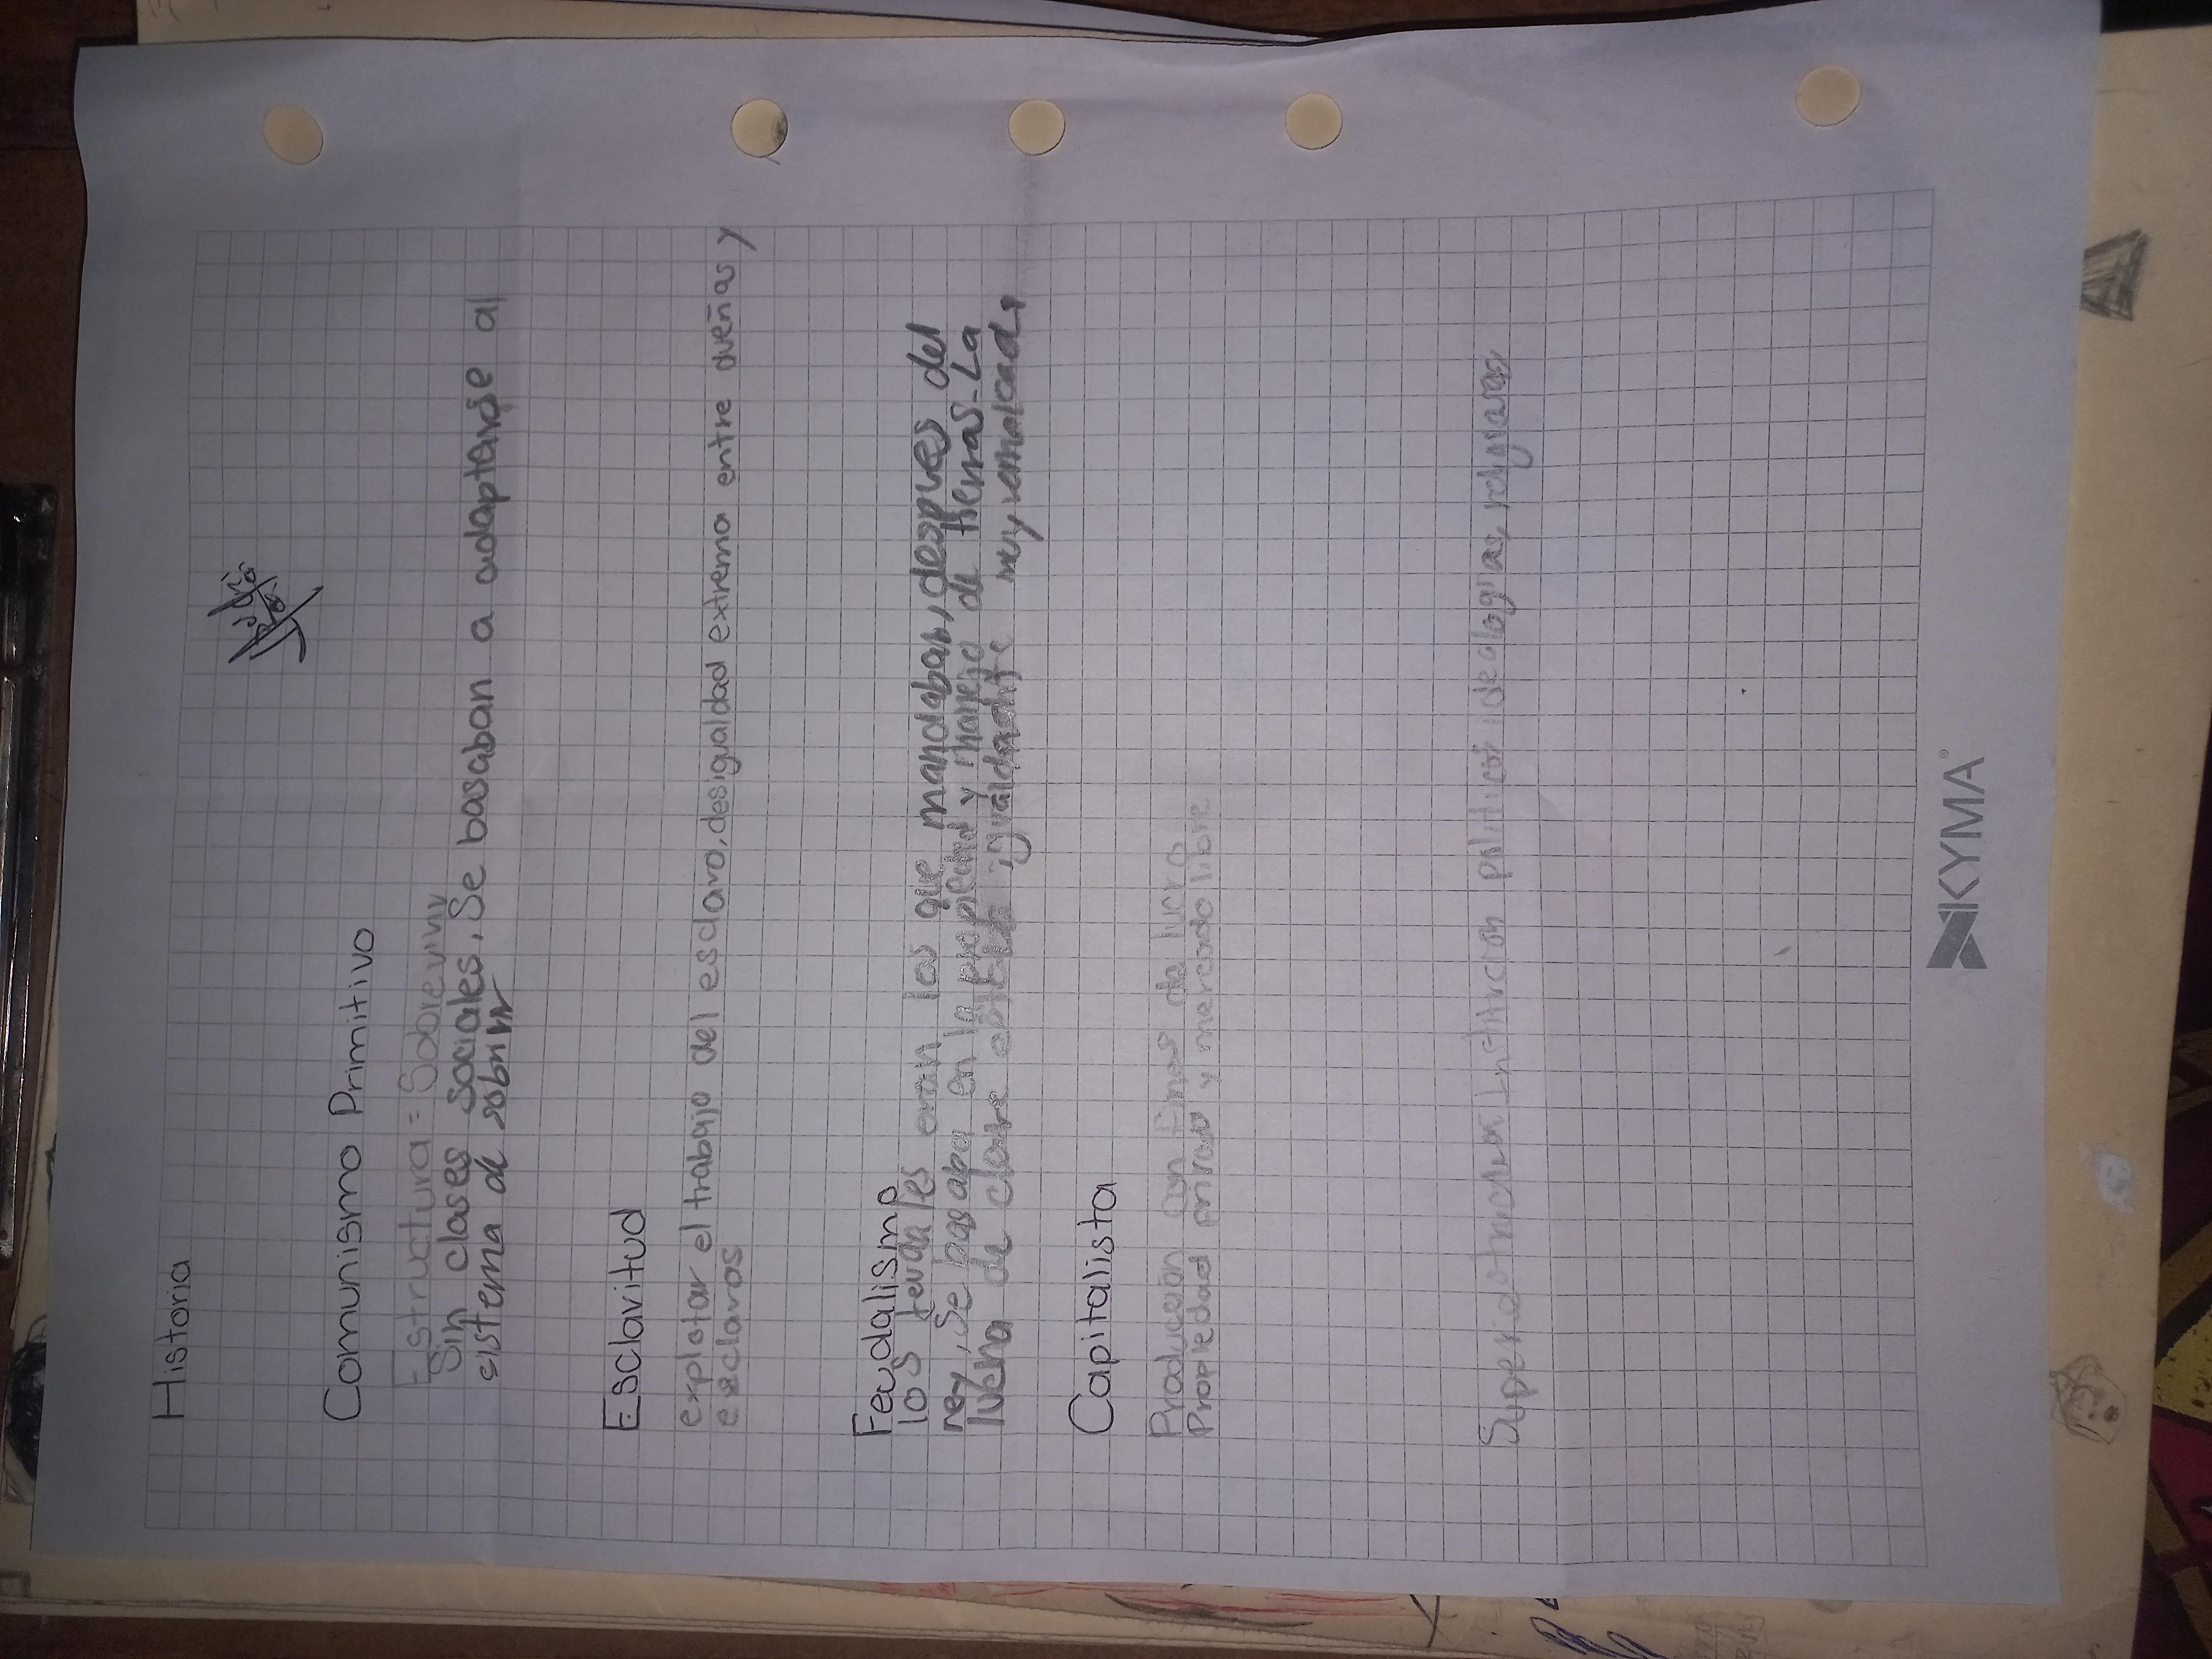 Historia
Comunismo Primitivo
Estructura = Sobrevivir
Sin clases sociales. Se basaban a adaptarse al
sistema de
Esclavitud
explotar el trabajo del esclavo, desigualdad extrema entre dueños y
esclavos
Feudalismo
los feudales eran los que mandaban, después del
rey, Se basaba en la propiedad y manejo de tierras. La
lucha de clase muy remarcada
Capitalista
Producción con fines de lucro
Propiedad privado y mercado libre
Institución política ideologías, religiosas
KYMA